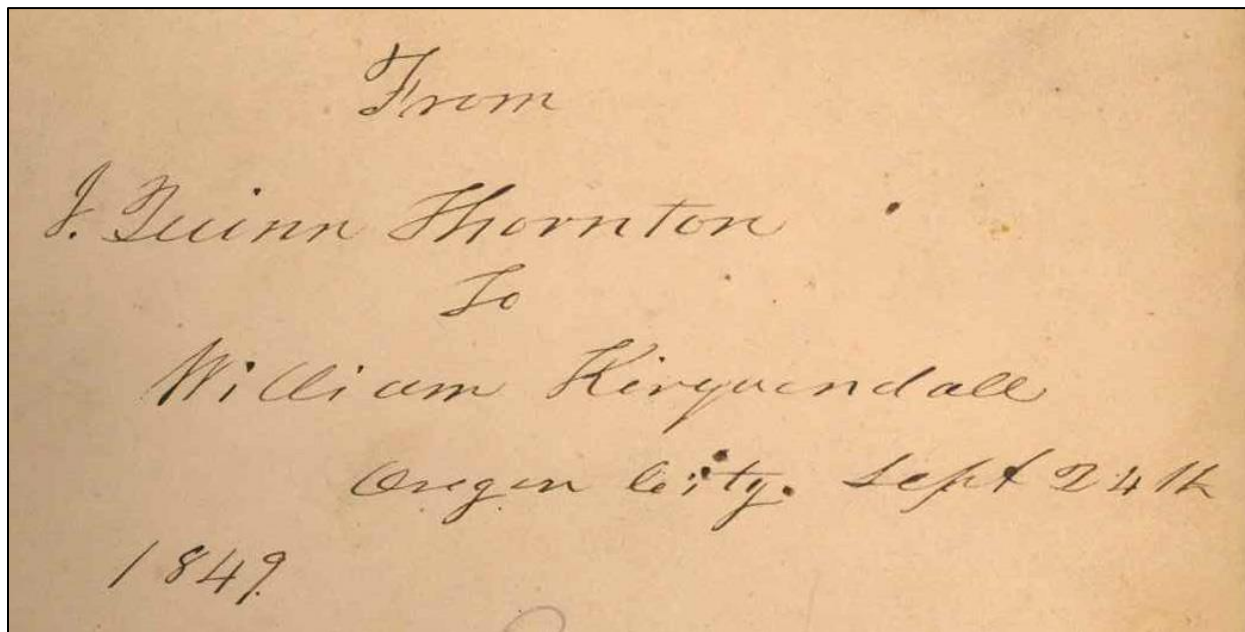 From
J. Quinn Thornton
To
William Kirquendall
Oregon City. Sept 24th
1849.